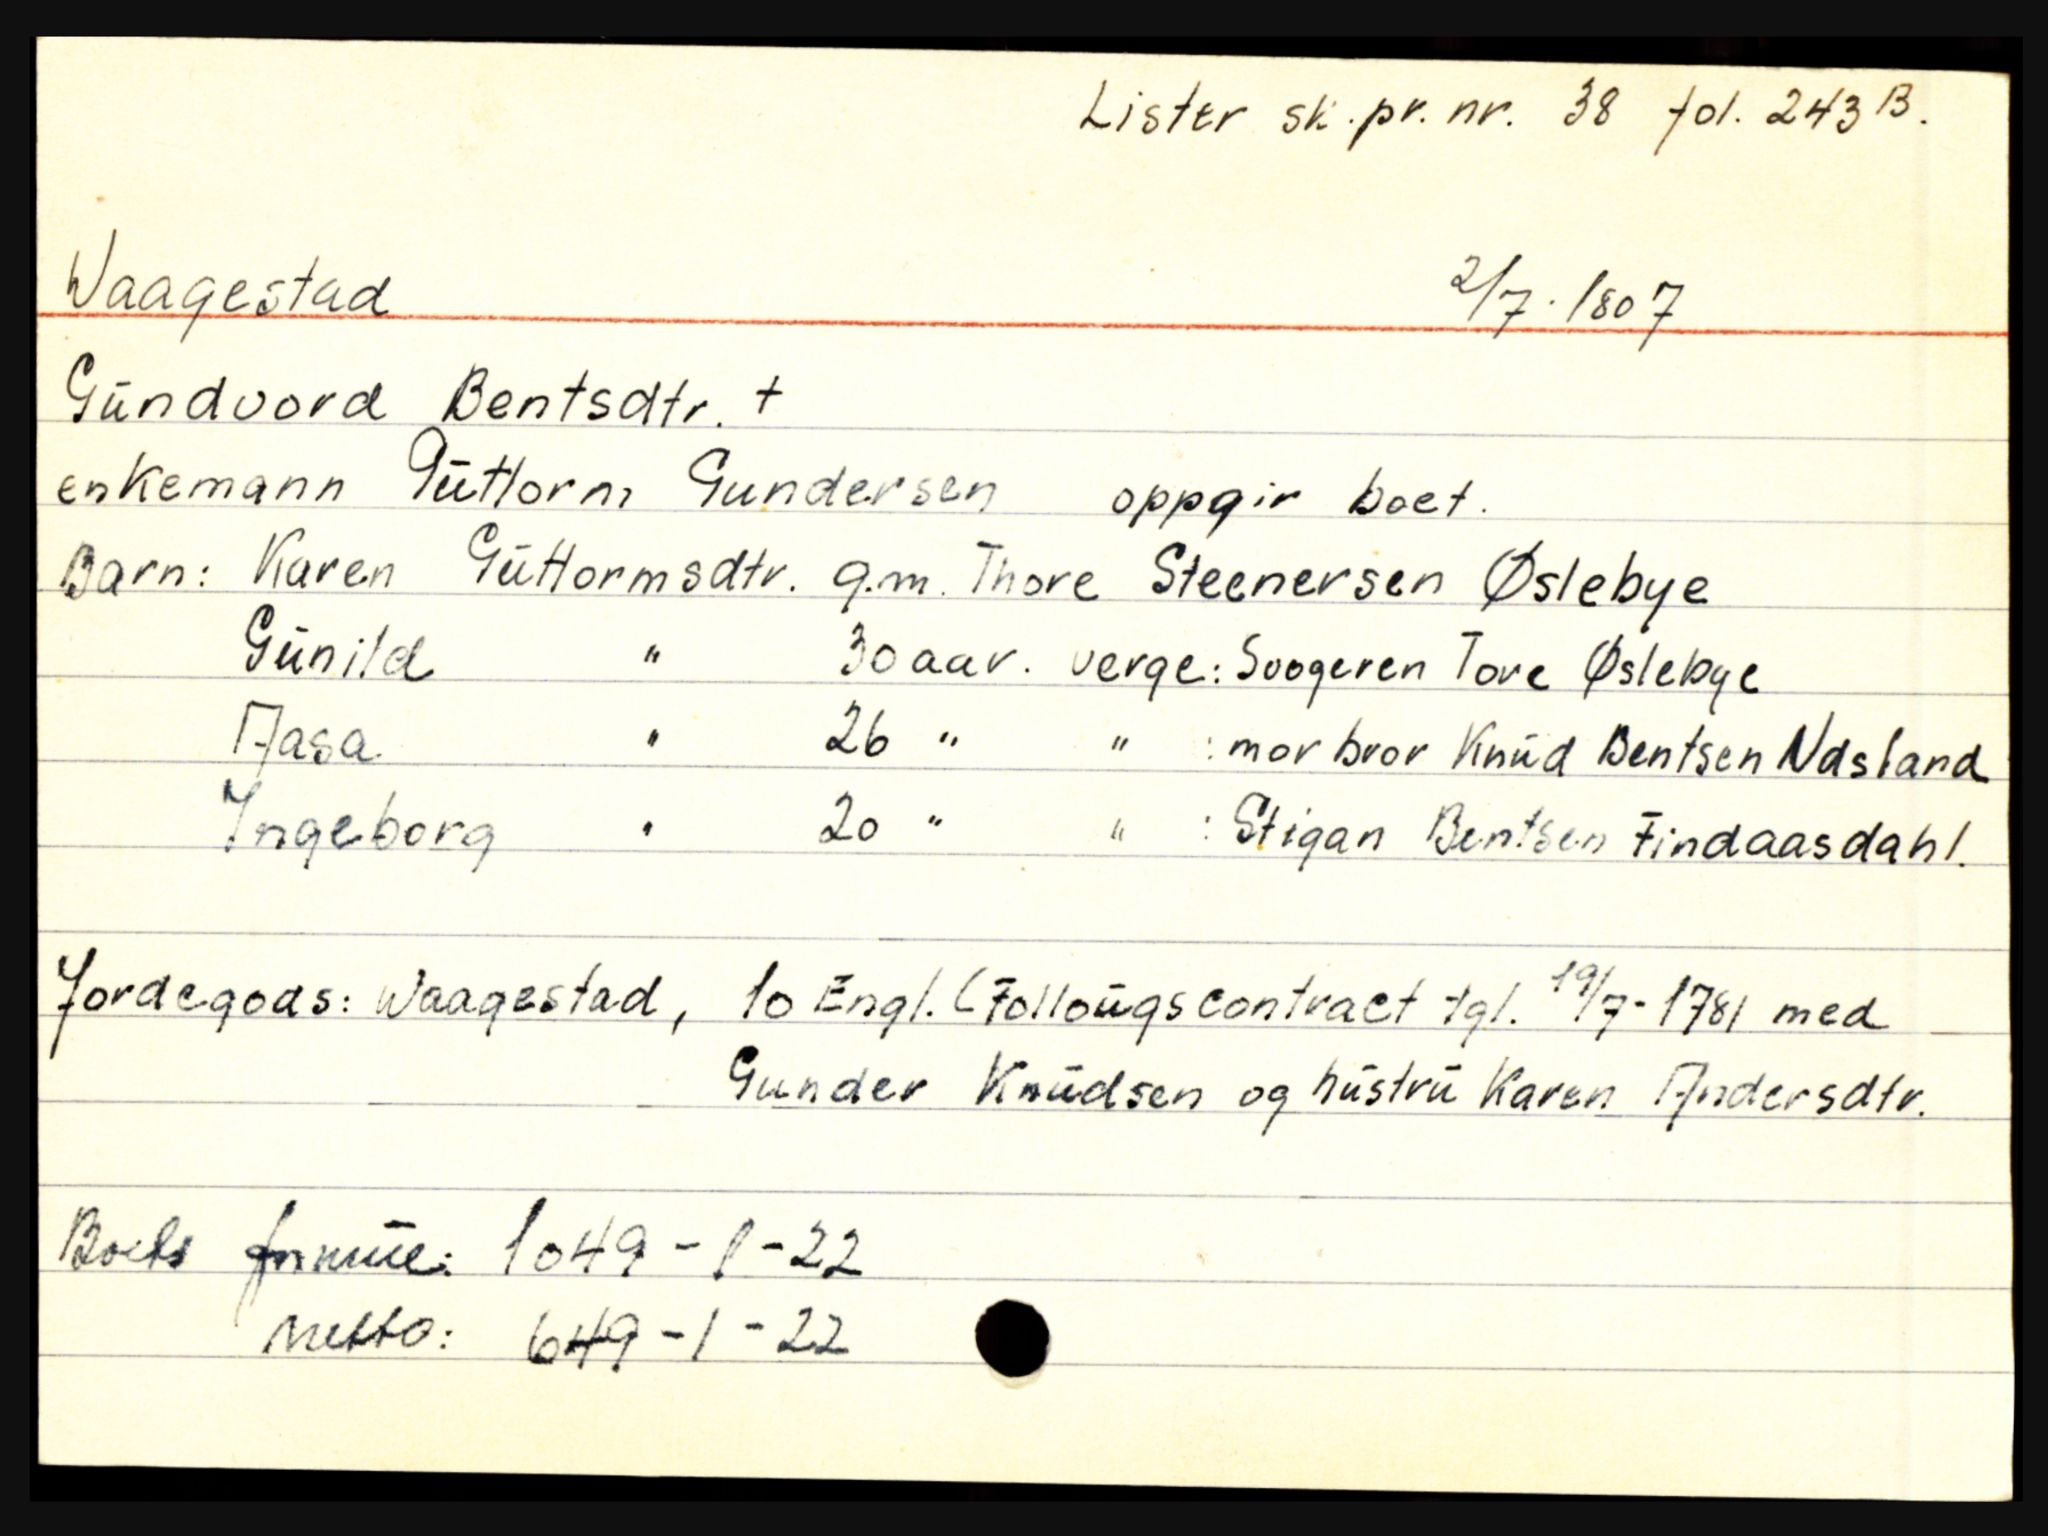 Lister sk.pr. nr. 38 fol. 243 B.
Waagestad 2/7. 1807
Gündvord Bentsdtr. +
enkemann Güttorm Gundersen oppgir boet.
Barn: Karen Güttormsdtr. g.m. Thore Steenersen Øslebye
Günild " 30 aar. verge: Svogeren Tore Øslebye
Aasa " 26 " " : morbror Knüd Bentsen
Ingeborg " 20 " " : Stigan Bentsen Findaasdahl.
Jordegods: Waagestad, 10 Engl. (Folloügscontract tgl. 19/7-1781 med
Gunder Knüdsen og hüstrü Karen Andersdtr.
Boets formüe: 1049-1-22
Netto: 649-1-22